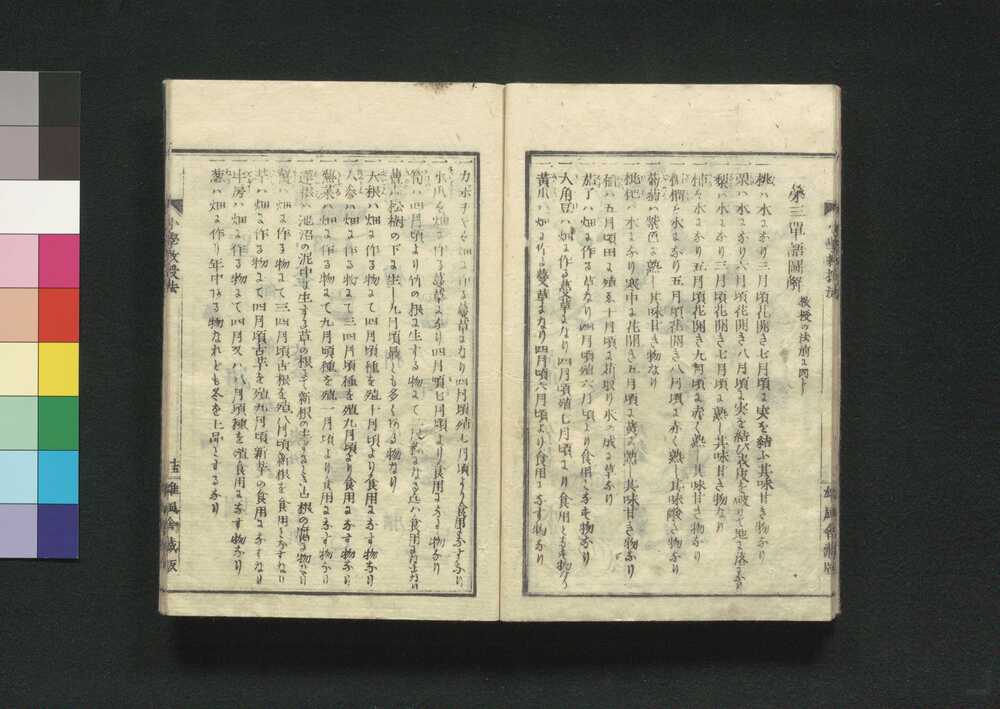 第三單語圖解 教授の法前に同し
一桃ハ木になり三月頃花開き七月頃に実を結ふ其味甘き物なり
一栗ハ木になり六月頃花開き八月頃に実を結び表皮を破りて地に落るなり
一梨ハ木になり三月頃花開き七月頃に熟し其味甘き物なり
一柿ハ木になり五月頃花開き九月頃に赤く熟し其味甘き物なり
木になり五月頃花開き八月頃に赤く熟し其味酸き物なり
一葡萄ハ紫色に熟し其味甘き物なり
一枇杷ハ木になり寒中に花開き五月頃に黄に熟し其味甘き物なり
一稲ハ五月頃田に殖ゑ十月頃に苅取り米に成る草なり
一茄子ハ畑に作る草なり四月頃殖六月頃より食用となす物なり
一大角豆ハ畑に作る蔓草なり四月頃殖七月頃より食用となす物なり
一黄瓜ハ畑に作る蔓草なり四月頃六月頃より食用になす物なり
一カボチャも畑に作る蔓草なり四月頃殖七月頃より食用になすなり
一水瓜も畑に作る蔓草なり四月頃七月頃より食用になる物なり
一筍ハ四月頃より竹の根に生する物にて
一蕈ハ松樹の下に生し九月頃最とも多くある物なり
一大根ハ畑に作る物にて四月頃種を殖十月頃より食用になす物なり
一人参ハ畑に作る物にて三四月頃種を殖九月頃より食用になす物なり
菜ハ畑に作る物にて九月頃種を殖一月頃より食用になす物なり
一蓮根ハ池沼の泥中に生する草の根にて新根の生ずるとき古根の腐る物なり
ハ畑に作る物にて三四月頃古根を殖八月頃新根を食用となすなり
一芋ハ畑に作る物にて四月頃古芋を殖九月頃新芋の食用になすなり
一牛房ハ畑に作る物にて四月又ハ八月頃種を殖食用になす物なり
一葱ハ畑に作り年中ある物なれども冬を上品とするなり
小學教授法
十三 雄風舎蔵版